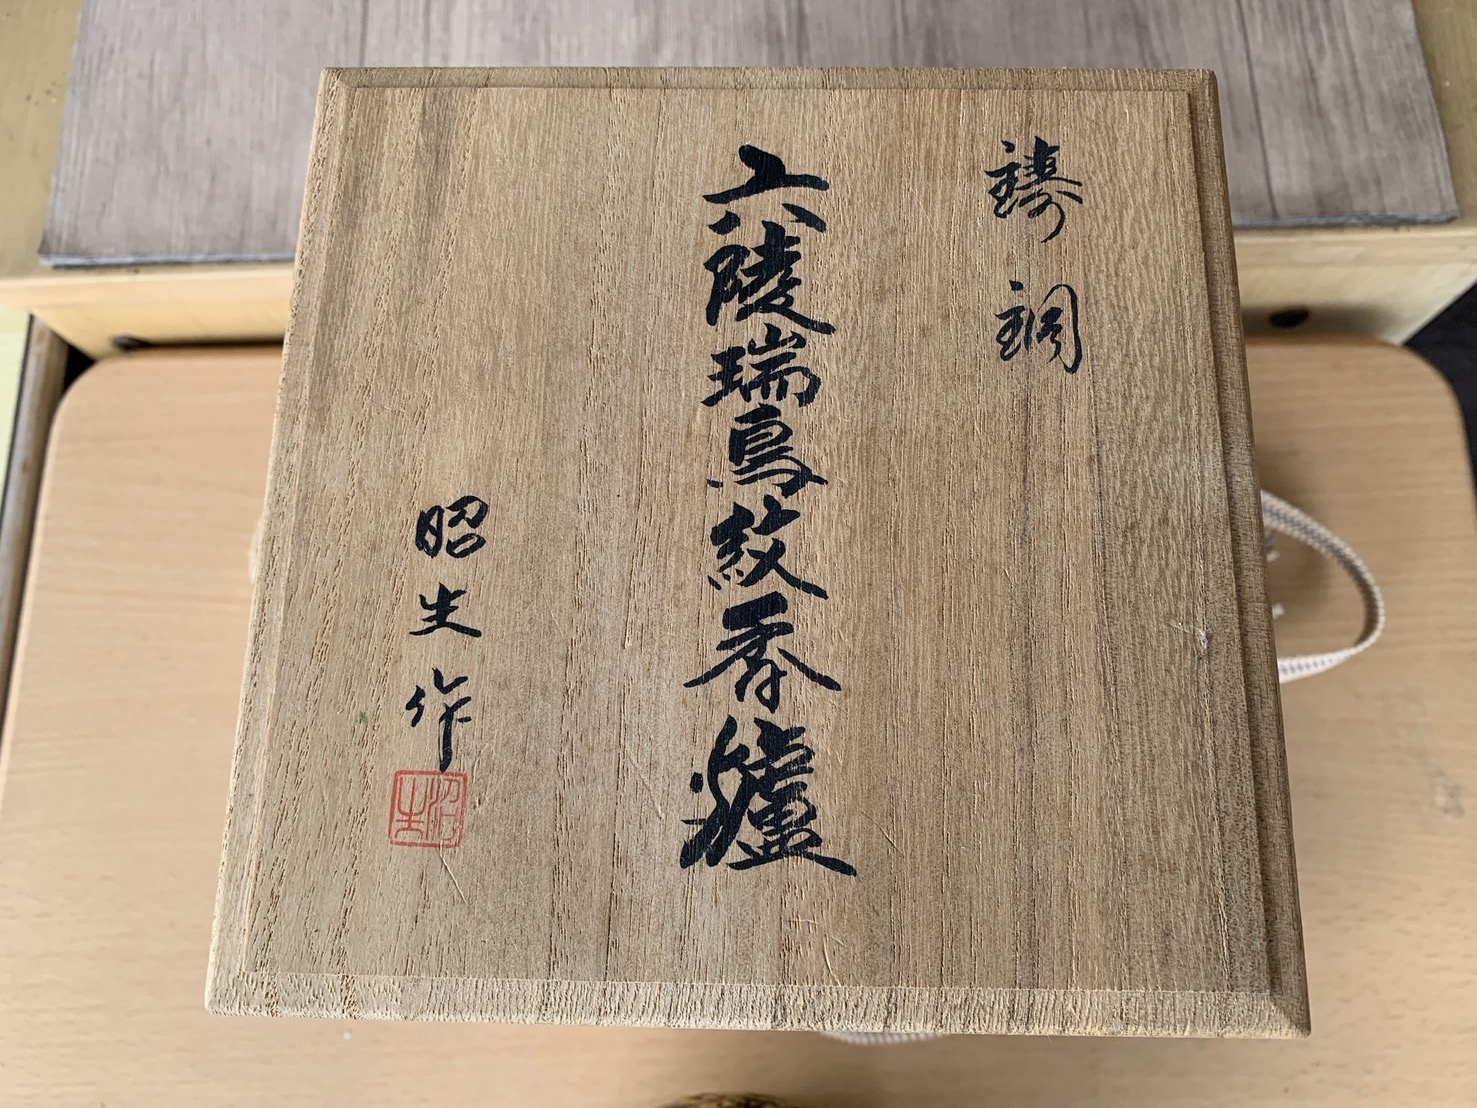 鋳銅
六陵瑞鳥紋香爐
昭生作
昭生